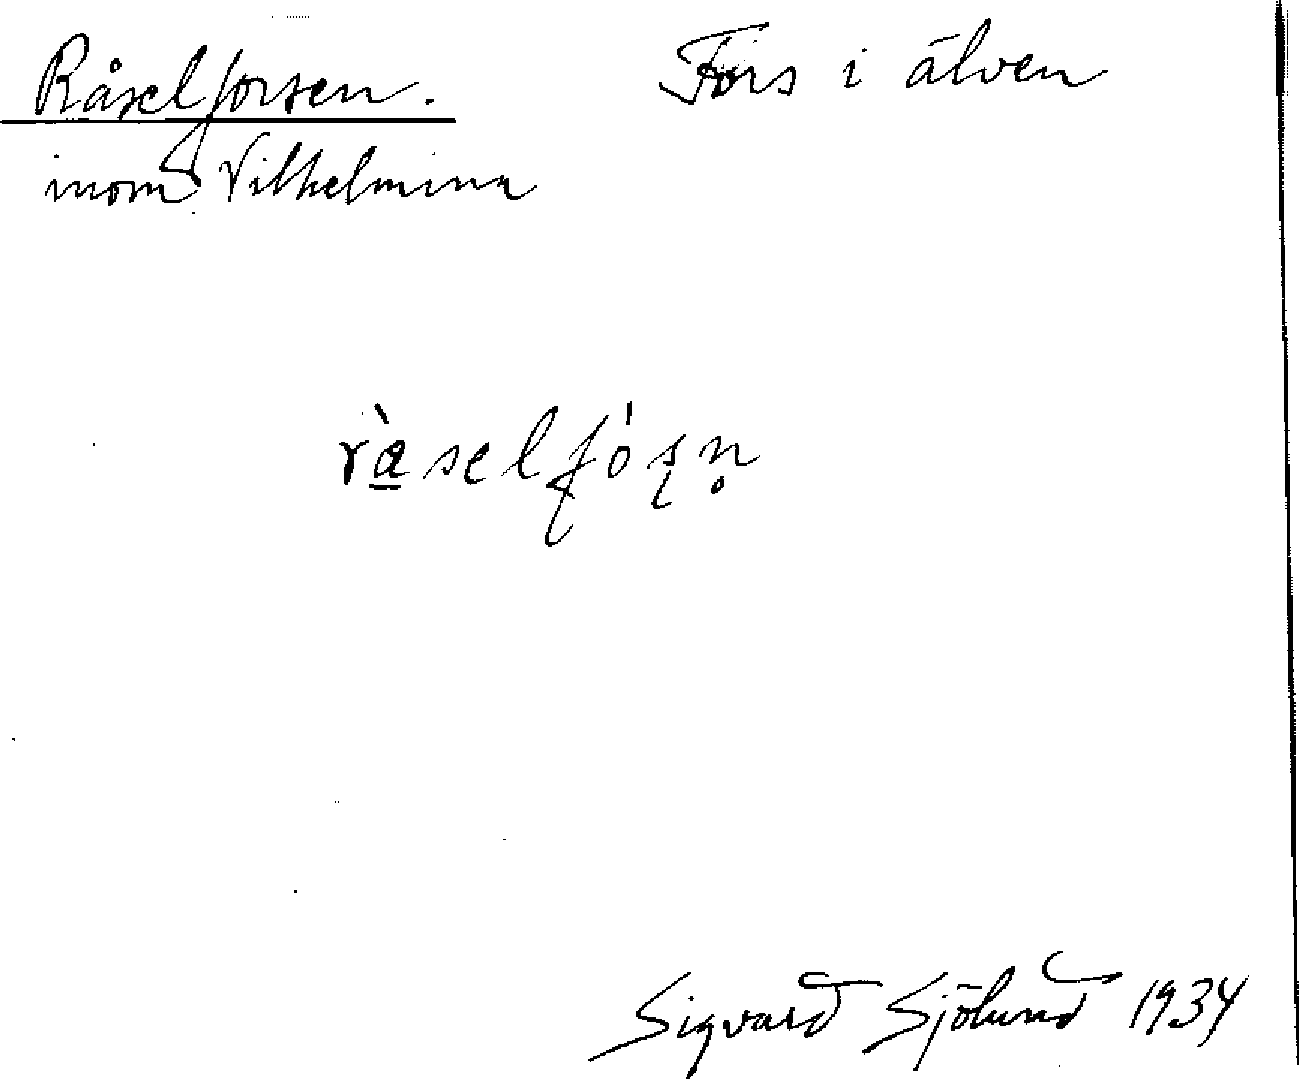 Råselforsen. Fors i älven
inom Vilhelmina
ràselfósn
Sigvard Sjölund 1934